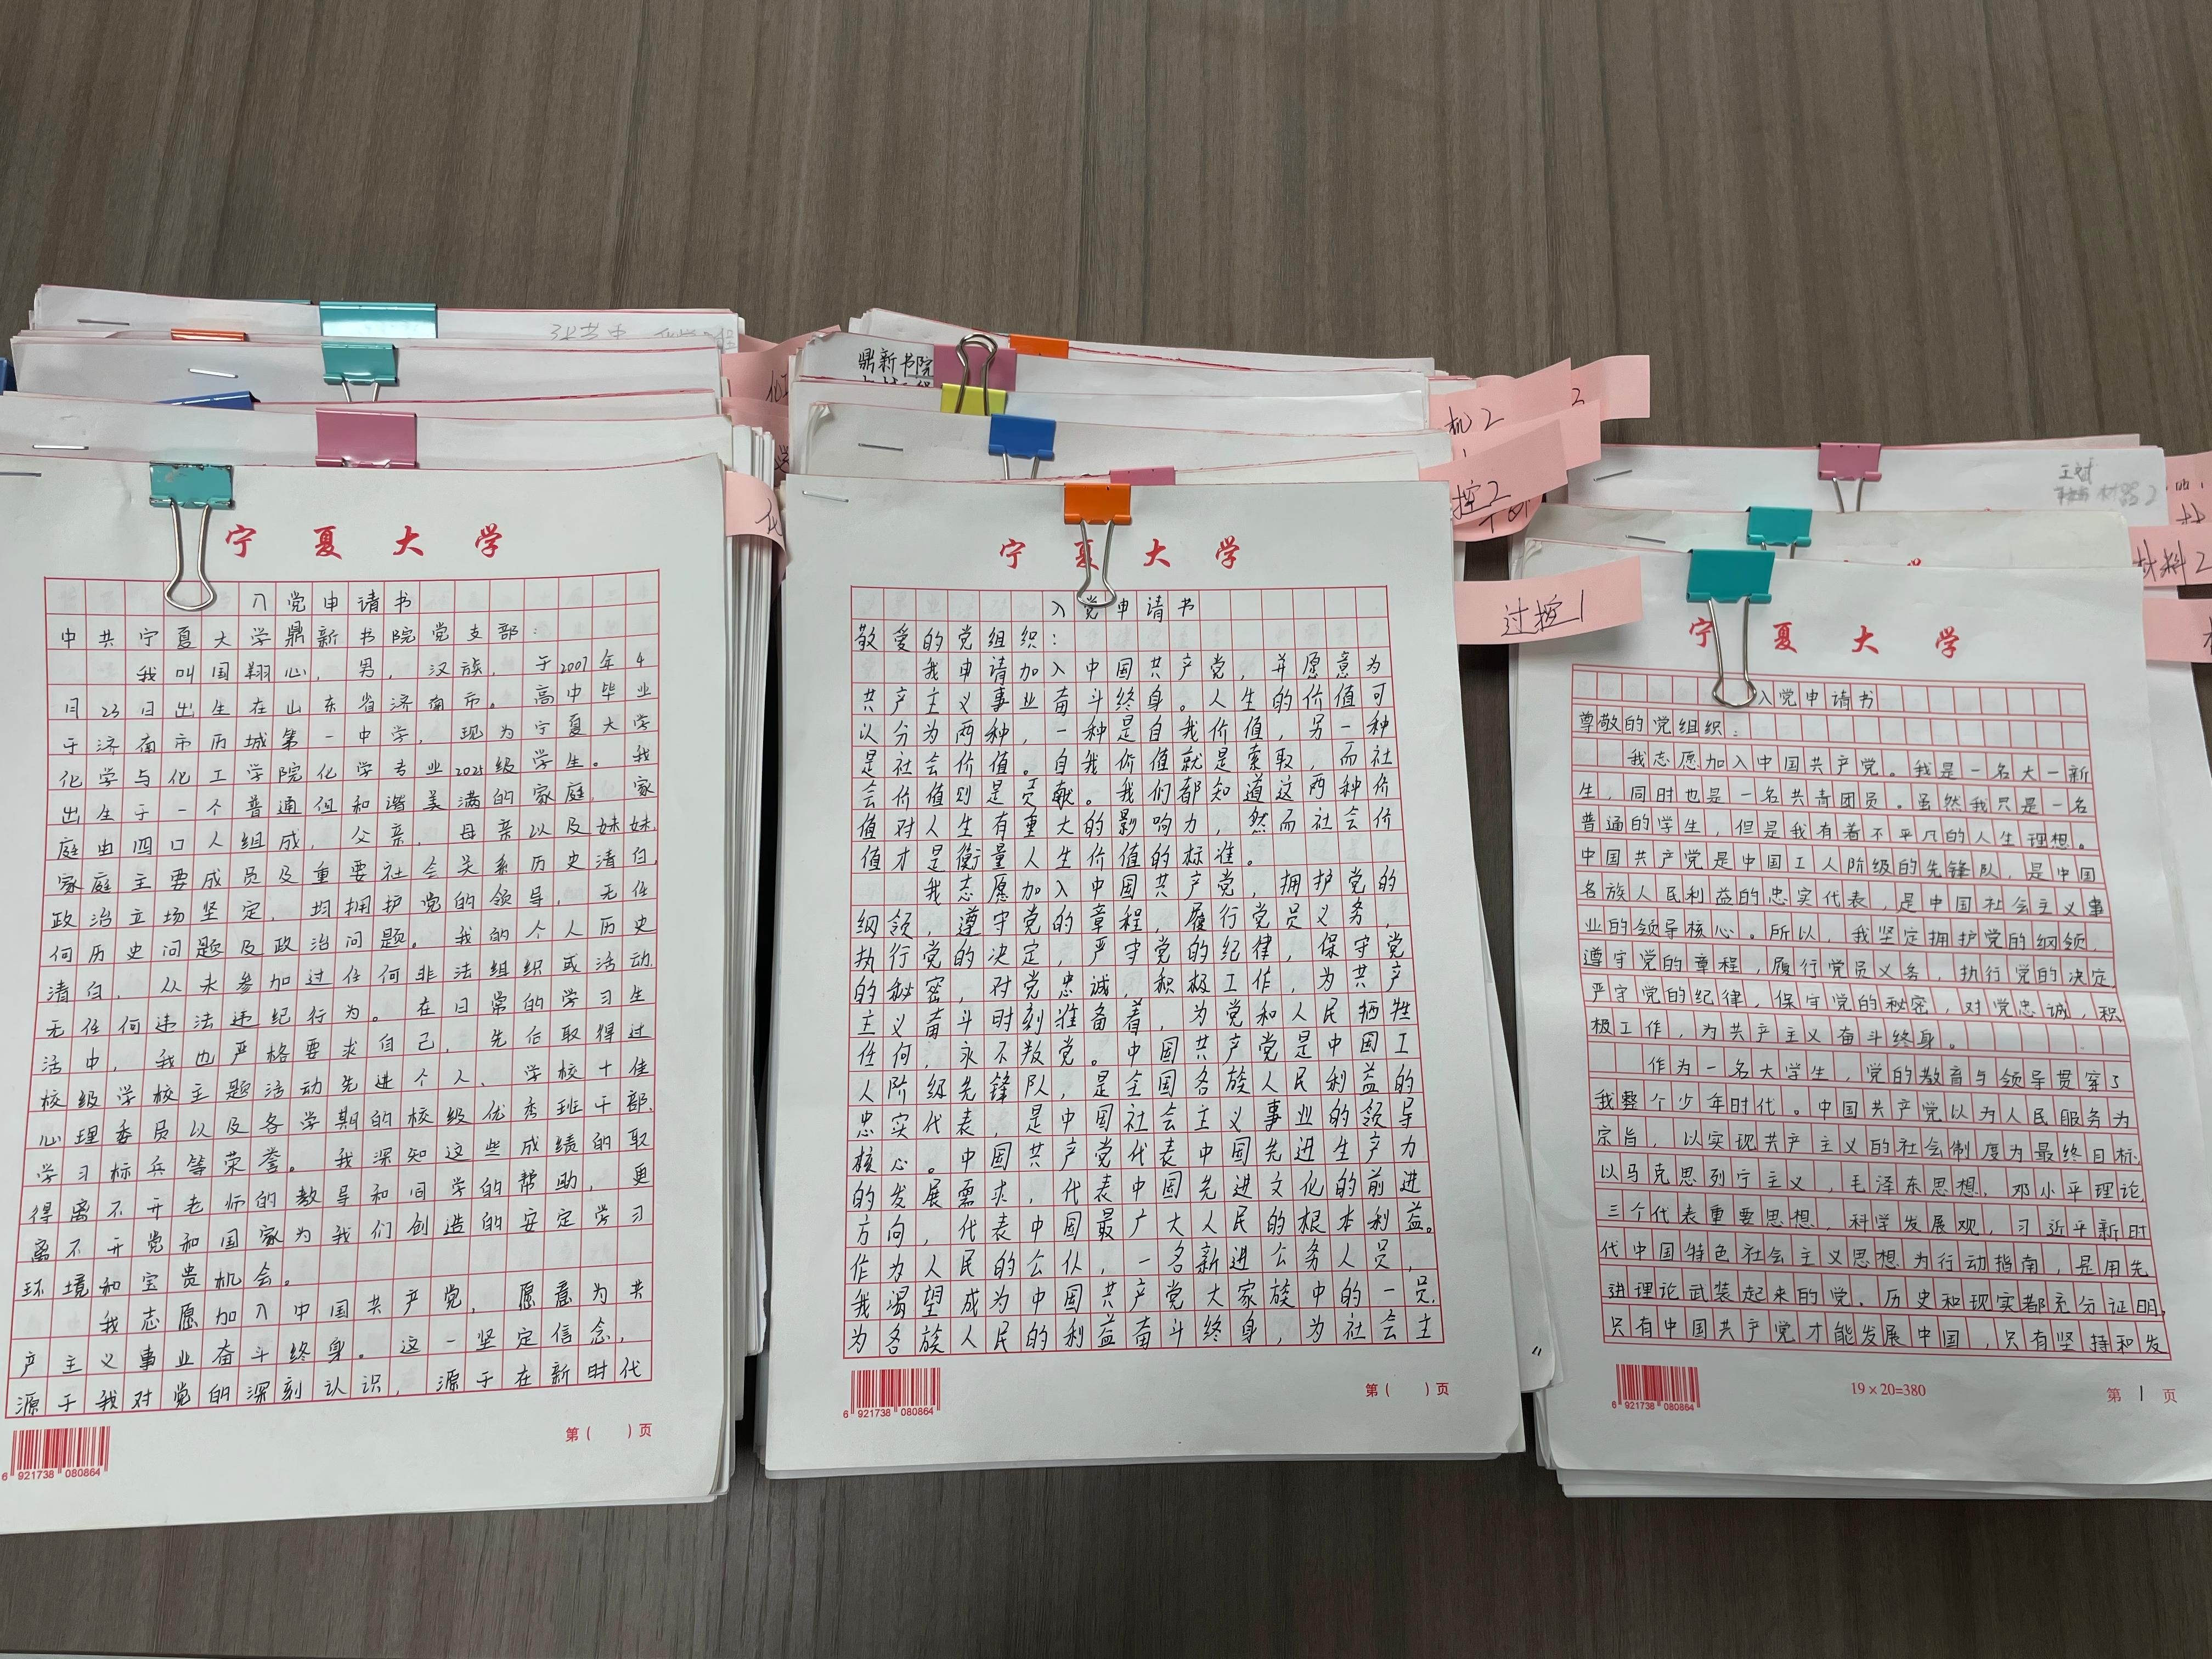 鼎新书院
机2
2
控2
过控1
材料2
宁夏大学
入党申请书
中共宁夏大学鼎新书院党支部：
我叫国翔心，男，汉族，于2007年4
月23日出生在山东省济南市。高中毕业
于济南市历城第一中学，现为宁夏大学
化学与化工学院化学专业2025级学生。我
出生于一个普通但和谐美满的家庭，家
庭由四口人组成，父亲，母亲以及妹妹，
家庭主要成员及重要社会关系历史清白，
政治立场坚定，均拥护党的领导，无任
何历史问题及政治问题。我的个人历史
清白，从未参加过任何非法组织或活动，
无任何违法违纪行为。在日常的学习生
活中，我也严格要求自己，先后取得过
校级学校主题活动先进个人、学校十佳
心理委员以及各学期的校级优秀班干部、
学习标兵等荣誉。我深知这些成绩的取
得离不开老师的教导和同学的帮助，更
离不开党和国家为我们创造的安定学习
环境和宝贵机会。
我志愿加入中国共产党，愿意为共
产主义事业奋斗终身。这一坚定信念，
源于我对党的深刻认识，源于在新时代
6 921738 080864
第（ ）页
宁夏大学
入党申请书
敬爱的党组织：
我申请加入中国共产党，并愿意为
共产主义事业奋斗终身。人生的价值可
以分为两种，一种是自我价值，另一种
是社会价值。自我价值就是索取，而社
会价值则是贡献。我们都知道这两种价
值对人生有重大的影响力，然而社会价
值才是衡量人生价值的标准。
我志愿加入中国共产党，拥护党的
纲领，遵守党的章程，履行党员义务，
执行党的决定，严守党的纪律，保守党
的秘密，对党忠诚，积极工作，为共产
主义奋斗时刻准备着，为党和人民牺牲
任何，永不叛党。中国共产党是中国工
人阶级先锋队，是全国各族人民利益的
忠实代表，是中国社会主义事业的领导
核心。中国共产党代表中国先进生产力
的发展需求，代表中国先进文化的前进
方向，代表中国最广大人民的根本利益。
作为人民的公仆，一名新进公务人员，
我渴望成为中国共产党大家族中的一员，
为各族人民的利益奋斗终身，为社会主
6 921738 080864
第（ ）页
宁夏大学
入党申请书
尊敬的党组织：
我志愿加入中国共产党。我是一名大一新
生，同时也是一名共青团员。虽然我只是一名
普通的学生，但是我有着不平凡的人生理想。
中国共产党是中国工人阶级的先锋队，是中国
各族人民利益的忠实代表，是中国社会主义事
业的领导核心。所以，我坚定拥护党的纲领，
遵守党的章程，履行党员义务，执行党的决定，
严守党的纪律，保守党的秘密，对党忠诚，积
极工作，为共产主义奋斗终身。
作为一名大学生，党的教育与领导贯穿了
我整个少年时代。中国共产党以为人民服务为
宗旨，以实现共产主义的社会制度为最终目标，
以马克思列宁主义，毛泽东思想，邓小平理论，
三个代表重要思想，科学发展观，习近平新时
代中国特色社会主义思想为行动指南，是用先
进理论武装起来的党。历史和现实都充分证明，
只有中国共产党才能发展中国，只有坚持和发
6 921738 080864
19×20=380
第 1 页